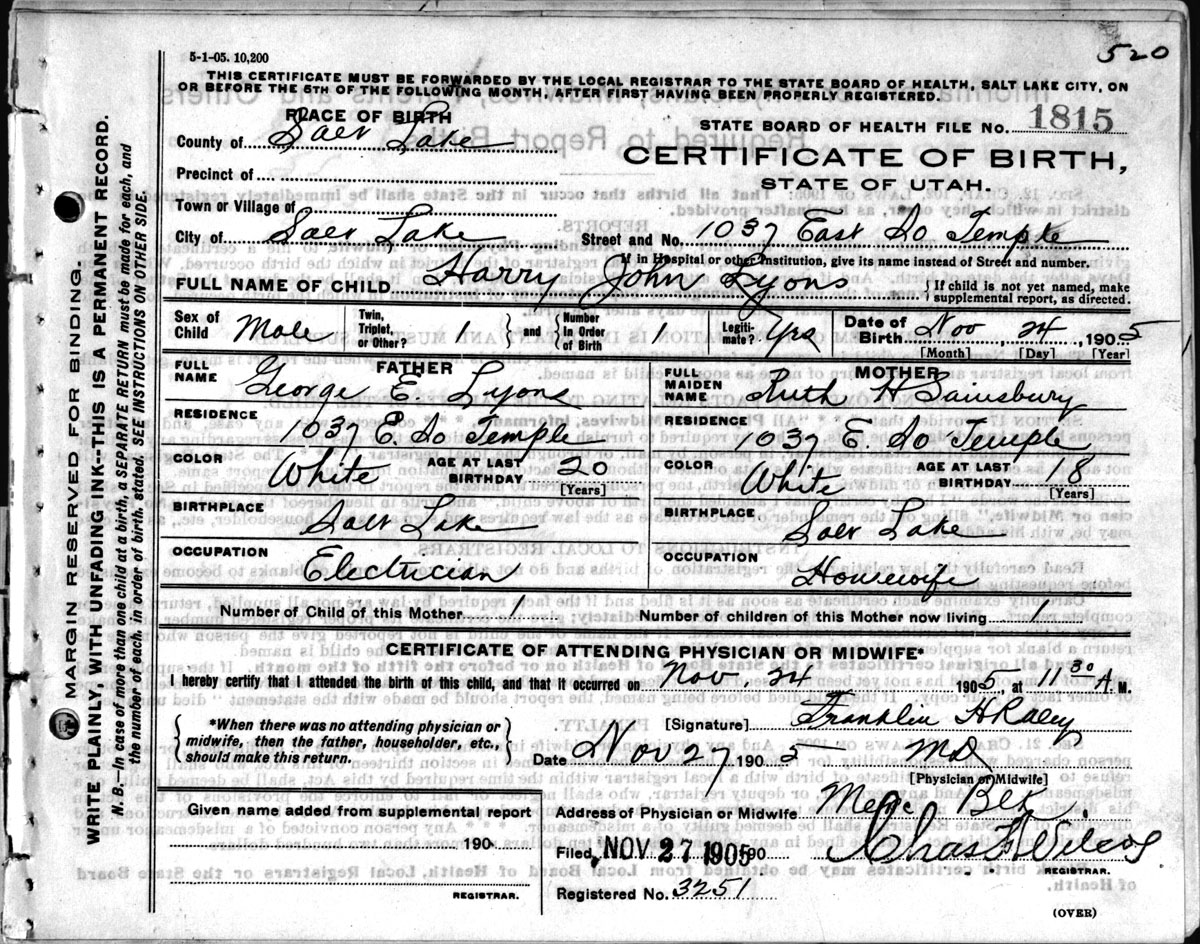 520
5-1-05. 10,200
THIS CERTIFICATE MUST BE FORWARDED BY THE LOCAL REGISTRAR TO THE STATE BOARD OF HEALTH, SALT LAKE CITY, ON
OR BEFORE THE 5TH OF THE FOLLOWING MONTH, AFTER FIRST HAVING BEEN PROPERLY REGISTERED.
PLACE OF BIRTH
County of Salt Lake
STATE BOARD OF HEALTH FILE NO. 1815
CERTIFICATE OF BIRTH,
STATE OF UTAH.
Precinct of
Town or Village of
City of Salt Lake Street and No. 1037 East So Temple
If in Hospital or other Institution, give its name instead of Street and number.
FULL NAME OF CHILD Harry John Lyons { If child is not yet named, make
supplemental report, as directed.
Sex of Child Male Twin, Triplet, or Other? 1 } and { Number In Order of Birth 1 Legiti- mate? Yes Date of Birth Nov 24, 1905
[Month] [Day] [Year]
FATHER
FULL NAME George E. Lyons
RESIDENCE
1037 E. So Temple
COLOR White AGE AT LAST BIRTHDAY 20
[Years]
BIRTHPLACE
Salt Lake
OCCUPATION
Electrician
MOTHER
FULL MAIDEN NAME Ruth H Sainsbury
RESIDENCE
1037 E So Temple
COLOR White AGE AT LAST BIRTHDAY 18
[Years]
BIRTHPLACE
Salt Lake
OCCUPATION
Housewife
Number of Child of this Mother 1 Number of children of this Mother now living 1
CERTIFICATE OF ATTENDING PHYSICIAN OR MIDWIFE*
I hereby certify that I attended the birth of this child, and that it occurred on Nov. 24 1905, at 11 30 A. M.
{ *When there was no attending physician or
midwife, then the father, householder, etc.,
should make this return. }
[Signature] Franklin H Raley
Date Nov 27 1905 MD
[Physician or Midwife]
Given name added from supplemental report
190
REGISTRAR.
Address of Physician or Midwife Blk.
Filed, NOV 27 1905 190 Chas
REGISTRAR.
Registered No. 3251
(OVER)
MARGIN RESERVED FOR BINDING.
WRITE PLAINLY, WITH UNFADING INK--THIS IS A PERMANENT RECORD.
N. B.—In case of more than one child at a birth, a SEPARATE RETURN must be made for each, and
the number of each, in order of birth, stated. SEE INSTRUCTIONS ON OTHER SIDE.